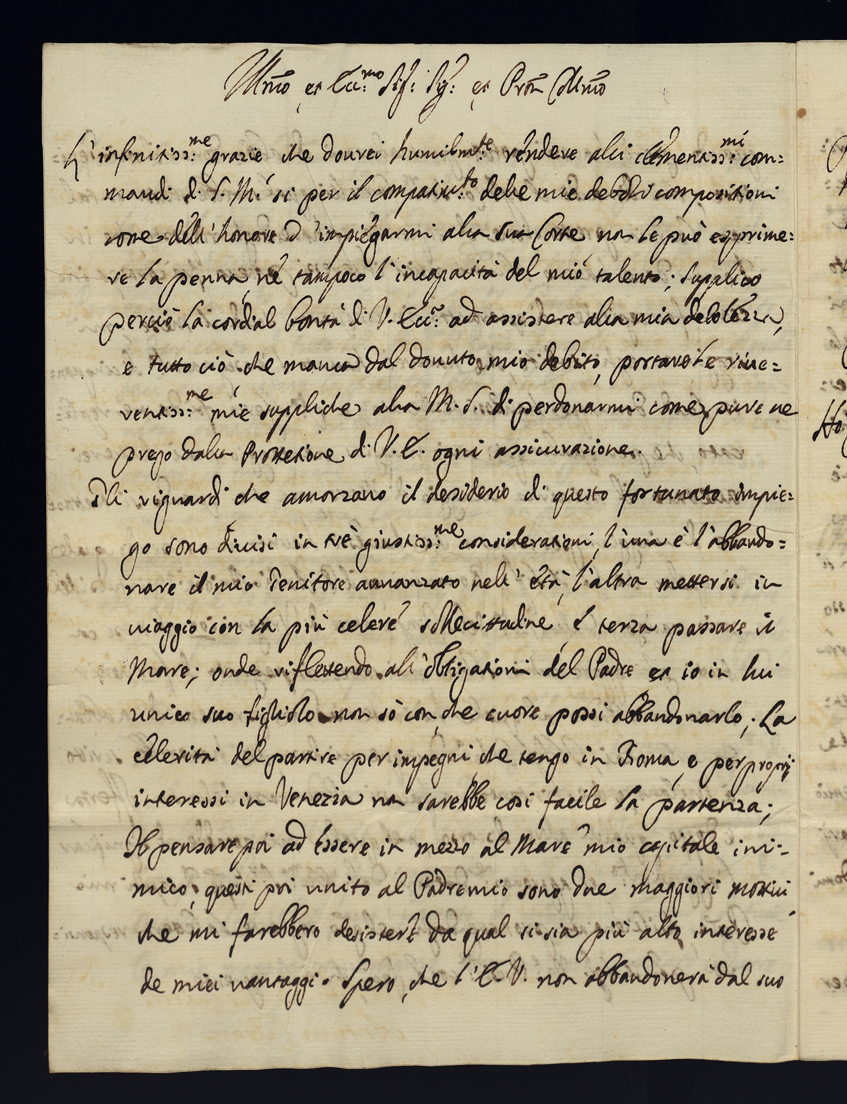 Illmo et Ecc:mo Sig: Sig: et Pron Colmo
L'infinitiss:me grazie che dourei humilmte rendere alli clementiss:mi com=
mandi di S. M. si per il compatim:to delle mie deboli compositioni
come dell'honore d'impiegarmi alla sua Corte non le può esprime=
re la penna né tampoco l'incapacità del mio talento; supplico
perciò la cordial bontà di V. Ecc: ad assistere alla mia debolezza,
e tutto ciò che manca dal douuto mio debito, portare le riue=
rentiss:me mie suppliche alla M. S. di perdonarmi come pure ne
prego dalla Protetione di V. E. ogni assicurazione.
Gli riguardi che amorzano il desiderio di questo fortunato impie=
go sono diuisi in trè giustiss:me considerationi, l'una è l'abbando=
nare il mio Genitore auanzato nell'età, l'altra mettersi in
uiaggio con la più celere sollecitudine, e terza passare il
Mare; onde riflettendo all'obligationi del Padre et io in lui
unico suo figliolo non sò con che cuore possi abbandonarlo; La
celerità del partire per impegni che tengo in Roma, e per proprij
interessi in Venezia non sarebbe così facile la partenza;
Il pensare poi ad essere in mezzo al Mare mio capitale ini=
mico, questi poi unito al Padre mio sono due maggiori mottiui
che mi farebbero desistere da qual si sia più alto interesse
de miei uantaggi. Spero, che l'E. V. non abbandonerà dal suo